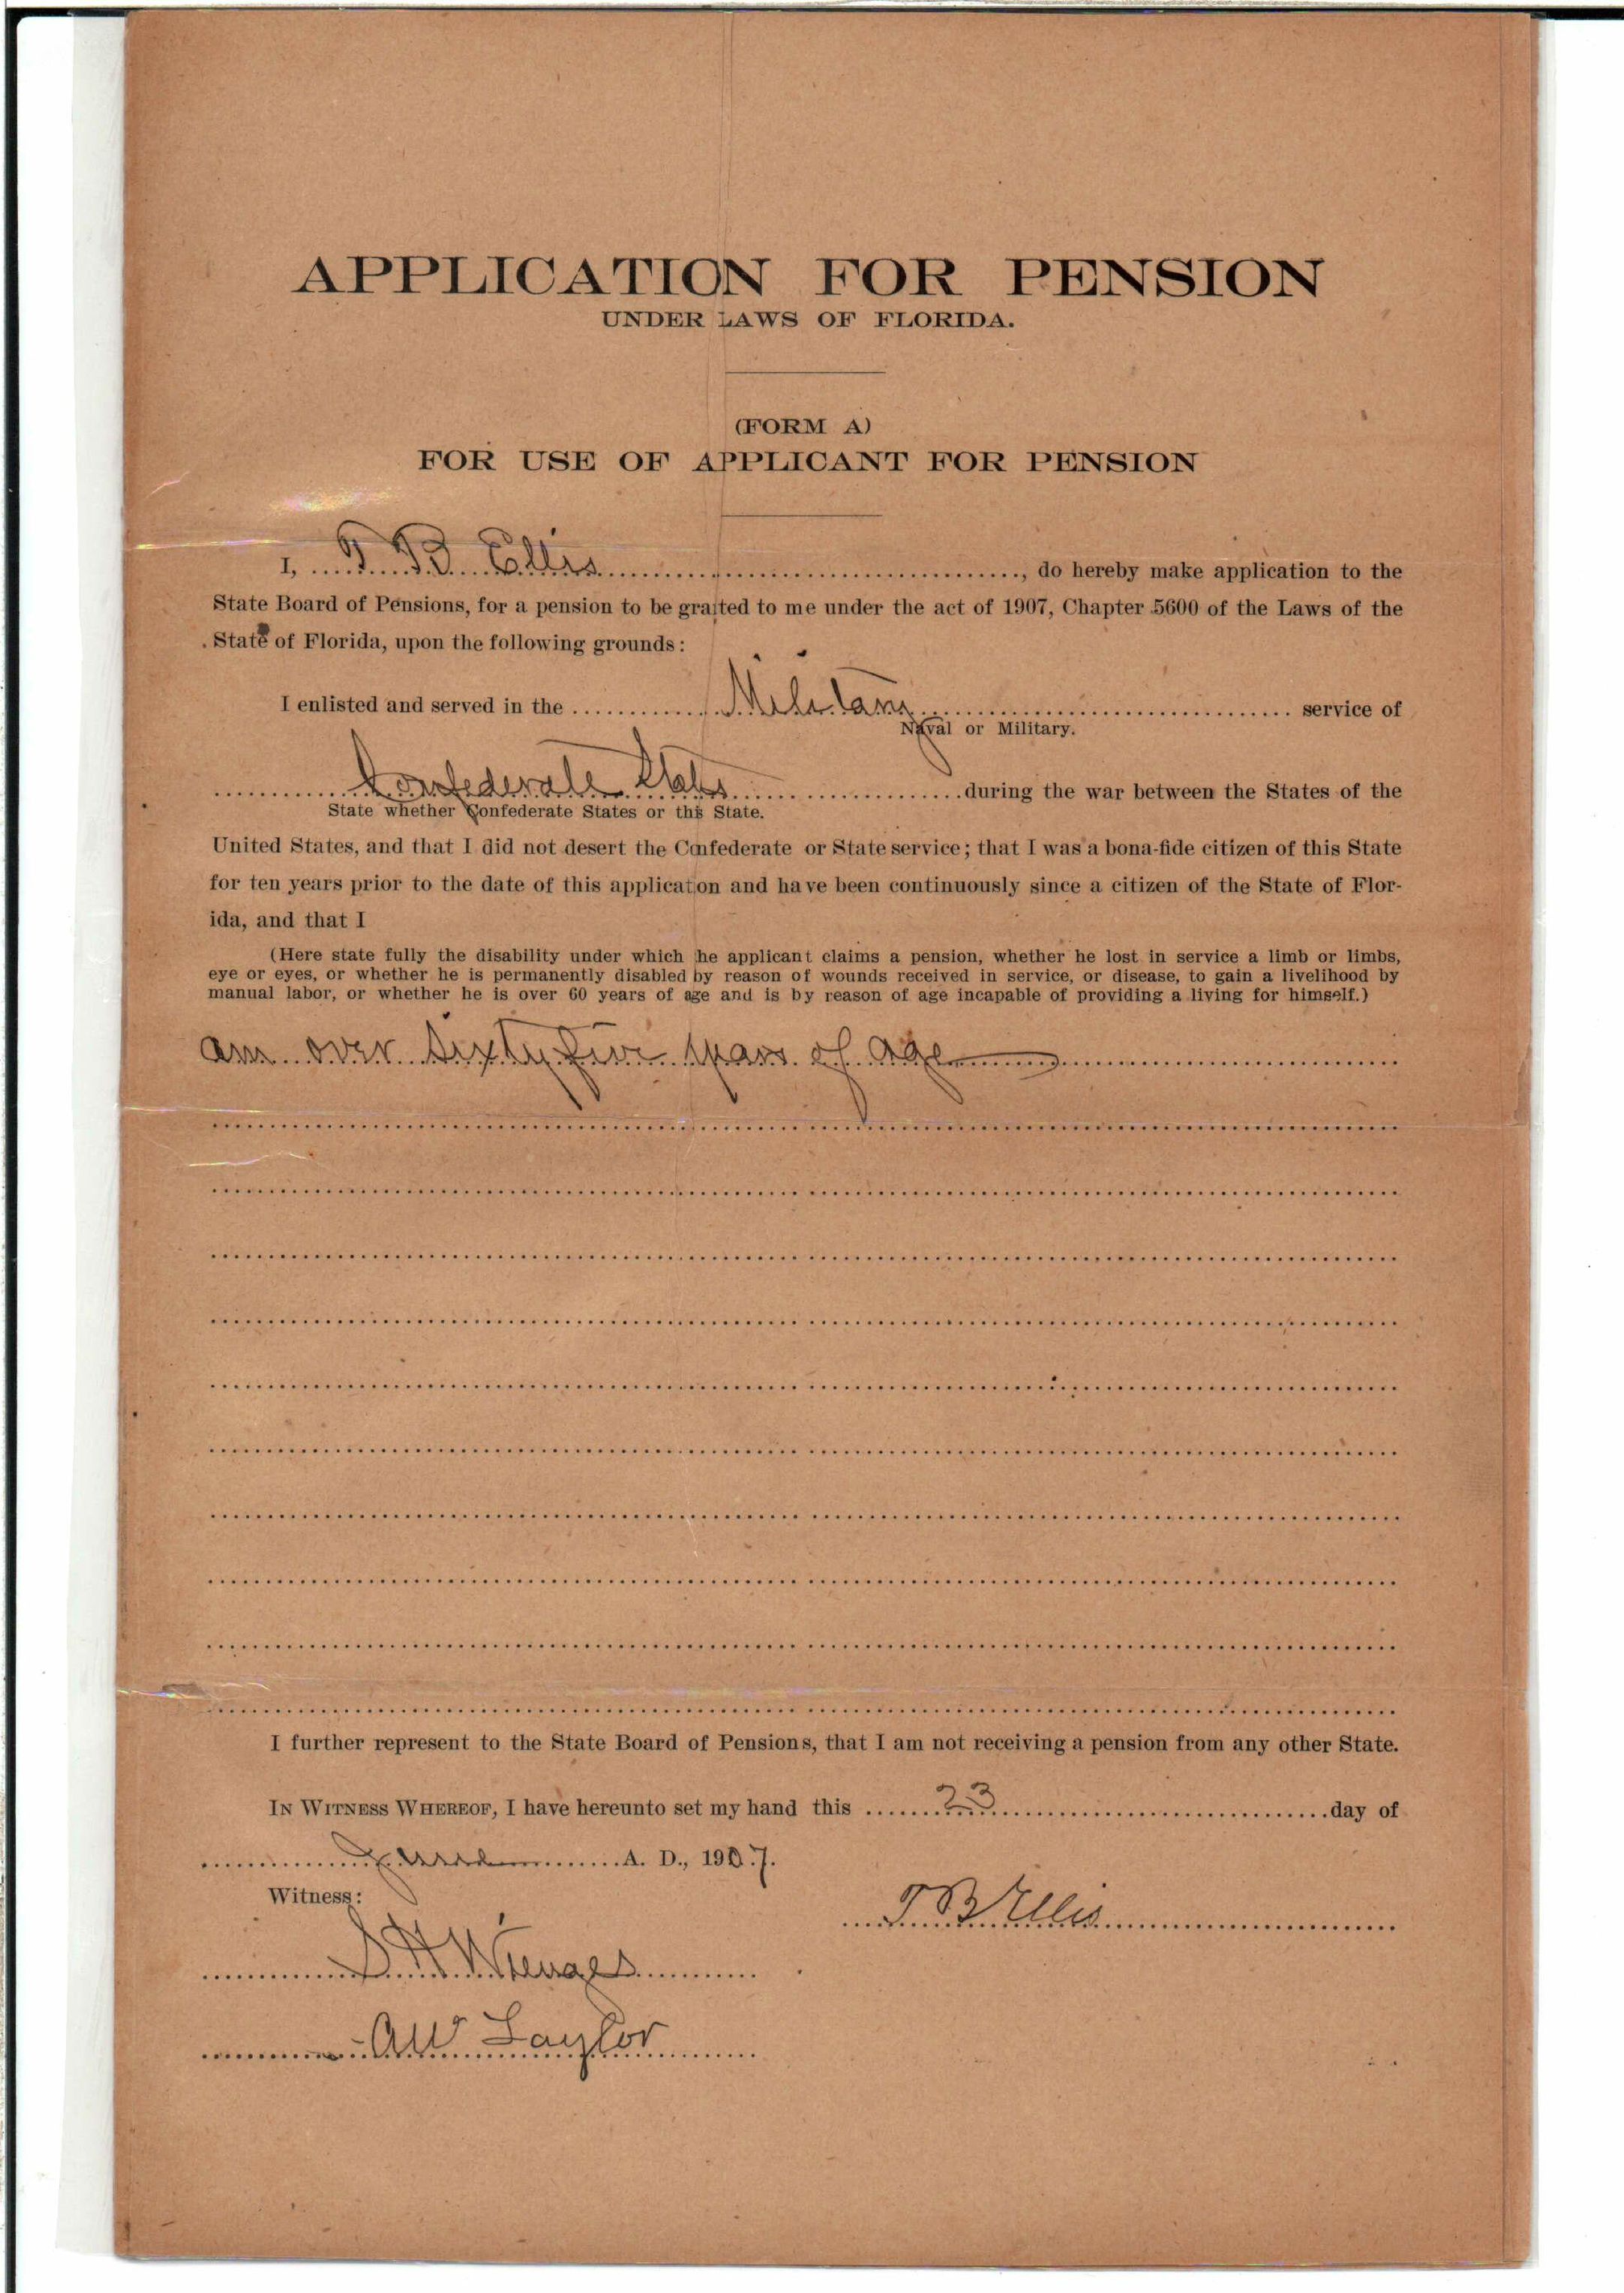 APPLICATION FOR PENSION
UNDER LAWS OF FLORIDA.
(FORM A)
FOR USE OF APPLICANT FOR PENSION
I, T B Ellis, do hereby make application to the
State Board of Pensions, for a pension to be granted to me under the act of 1907, Chapter 5600 of the Laws of the
State of Florida, upon the following grounds:
I enlisted and served in the Military service of
Naval or Military.
Confederate States during the war between the States of the
State whether Confederate States or this State.
United States, and that I did not desert the Confederate or State service; that I was a bona-fide citizen of this State
for ten years prior to the date of this application and have been continuously since a citizen of the State of Flor-
ida, and that I
(Here state fully the disability under which the applicant claims a pension, whether he lost in service a limb or limbs,
eye or eyes, or whether he is permanently disabled by reason of wounds received in service, or disease, to gain a livelihood by
manual labor, or whether he is over 60 years of age and is by reason of age incapable of providing a living for himself.)
am over Sixty five years of age
I further represent to the State Board of Pensions, that I am not receiving a pension from any other State.
IN WITNESS WHEREOF, I have hereunto set my hand this 23 day of
A. D., 1907.
Witness:
T B Ellis
S H Wienges
A W Taylor